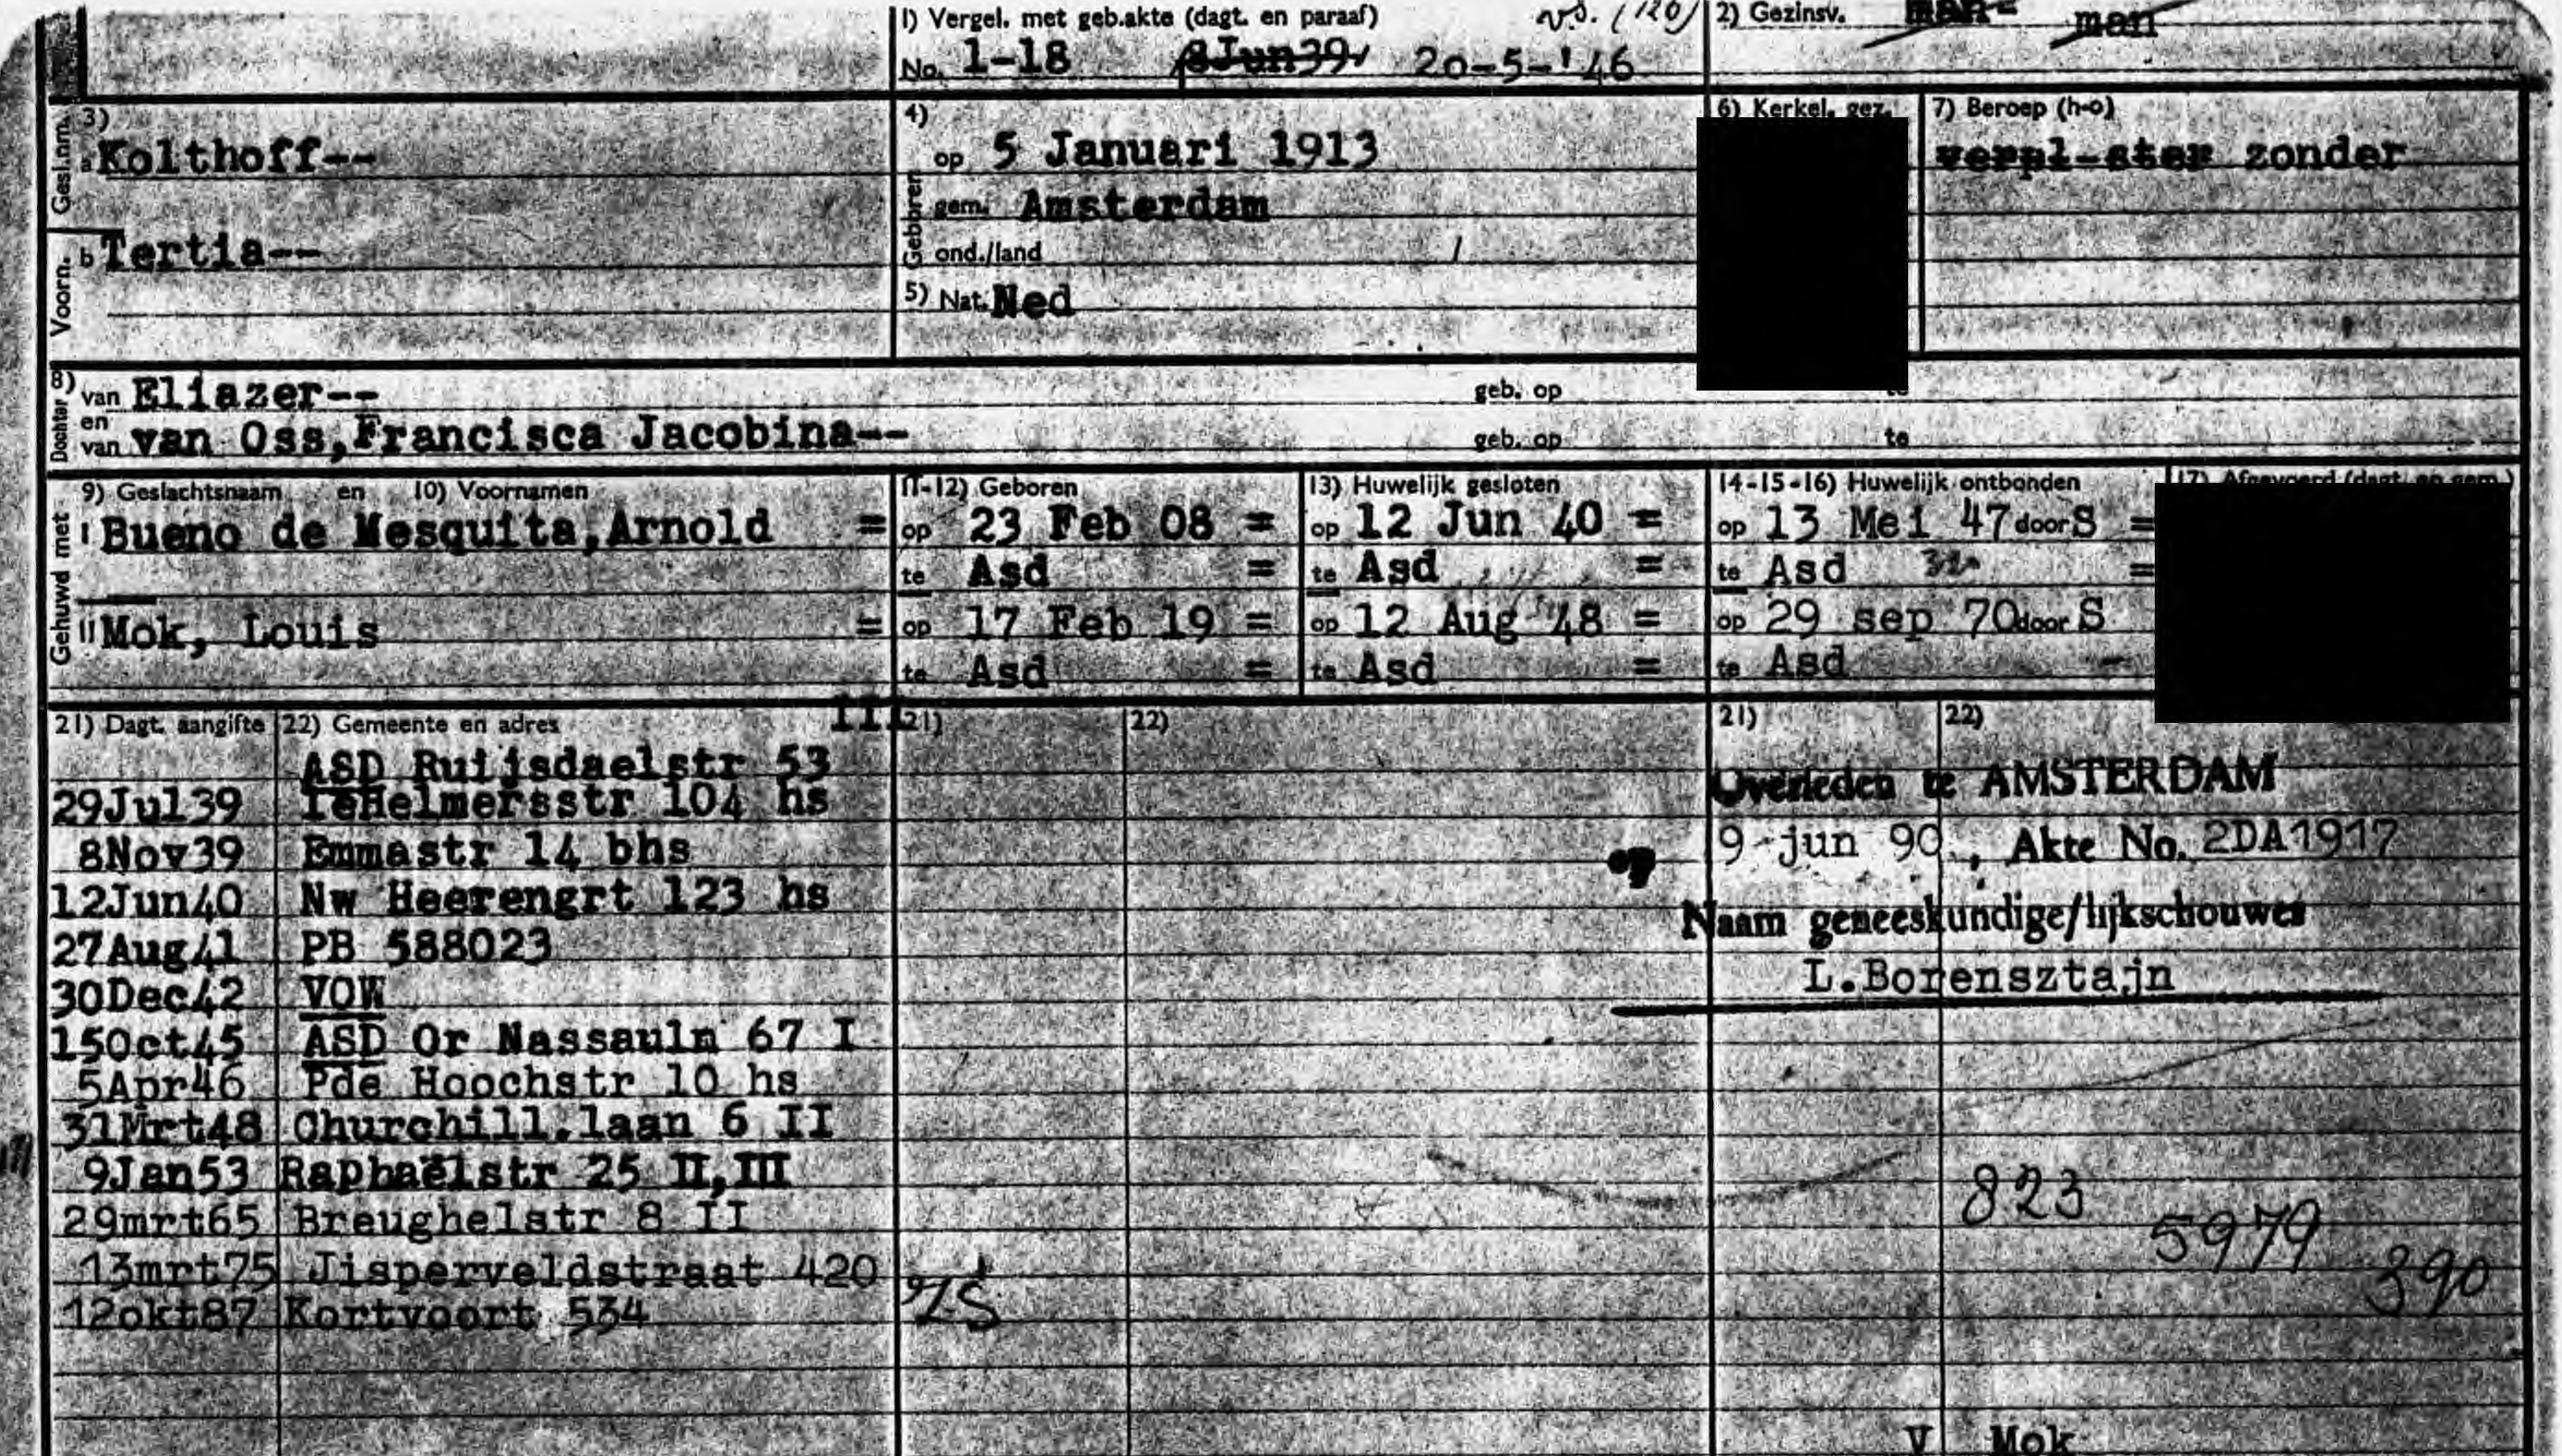 1) Vergel. met geb.akte (dagt. en paraaf)
No. 1-18 8Jun39 20-5-'46
2) Gezinsv. man man
3)
Gesl.nm. a Kolthoff--
Voorn. b Tertia--
4)
Geboren
op 5 Januari 1913
gem. Amsterdam
ond./land
5) Nat. Ned
6) Kerkel. gez.
7) Beroep (h-o)
verpl-ster zonder
8)
Dochter
van Eliazer-- geb. op
en
van van Oss,Francisca Jacobina-- geb. op te
Gehuwd met
9) Geslachtsnaam en 10) Voornamen 11-12) Geboren 13) Huwelijk gesloten 14-15-16) Huwelijk ontbonden 17) Afgevoerd (dagt. en gem.)
I Bueno de Mesquita,Arnold = op 23 Feb 08 = op 12 Jun 40 = op 13 Mei 47 door S =
te Asd = te Asd = te Asd =
II Mok, Louis = op 17 Feb 19 = op 12 Aug 48 = op 29 sep 70 door S
te Asd = te Asd = te Asd -
21) Dagt. aangifte 22) Gemeente en adres III 21) 22) 21) 22)
ASD Ruijsdaelstr 53
29Jul39 1eHelmersstr 104 hs
8Nov39 Emmastr 14 bhs
12Jun40 Nw Heerengrt 123 hs
27Aug41 PB 588023
30Dec42 VOW
15Oct45 ASD Or Nassauln 67 I
5Apr46 Pde Hoochstr 10 hs
31Mrt48 Churchill.laan 6 II
9Jan53 Raphaëlstr 25 II,III
29mrt65 Breughelstr 8 II
13mrt75 Jisperveldstraat 420
12okt87 Kortvoort 534
Overleden te AMSTERDAM
9-jun 90, Akte No. 2DA1917
Naam geneeskundige/lijkschouwer
L.Borensztajn
823
5979
390
V Mok